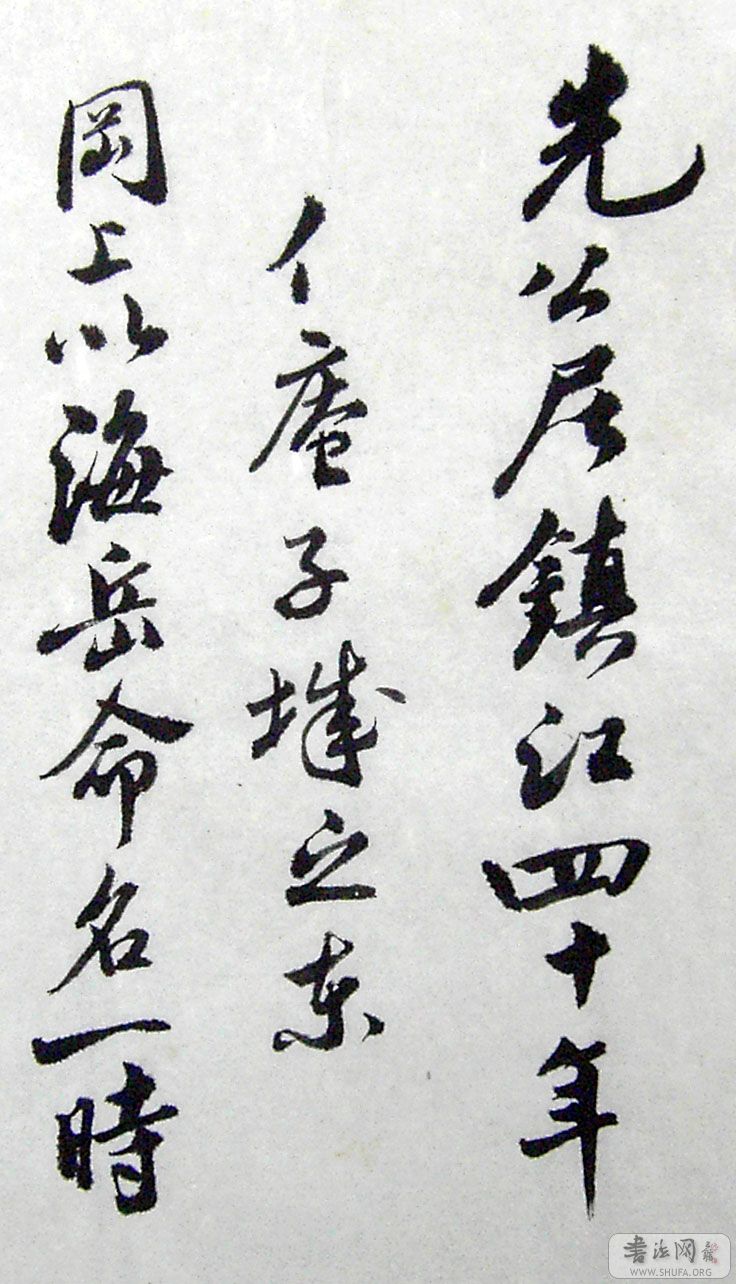 先公居鎮江四十年
庵子城之東
岡上以海岳命名一時
書法网
WWW.SHUFA.ORG